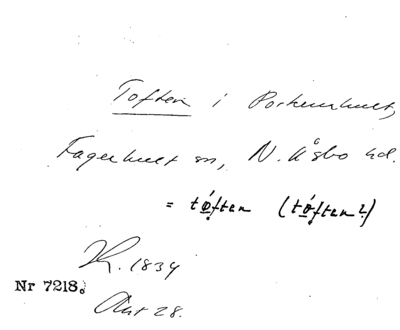 Toften i Porkenahult,
Fagerhult sn, N. Åsbo hd.
= tǿften (tǿften?)
R. 1834
Nr 7218.
Akt 28.